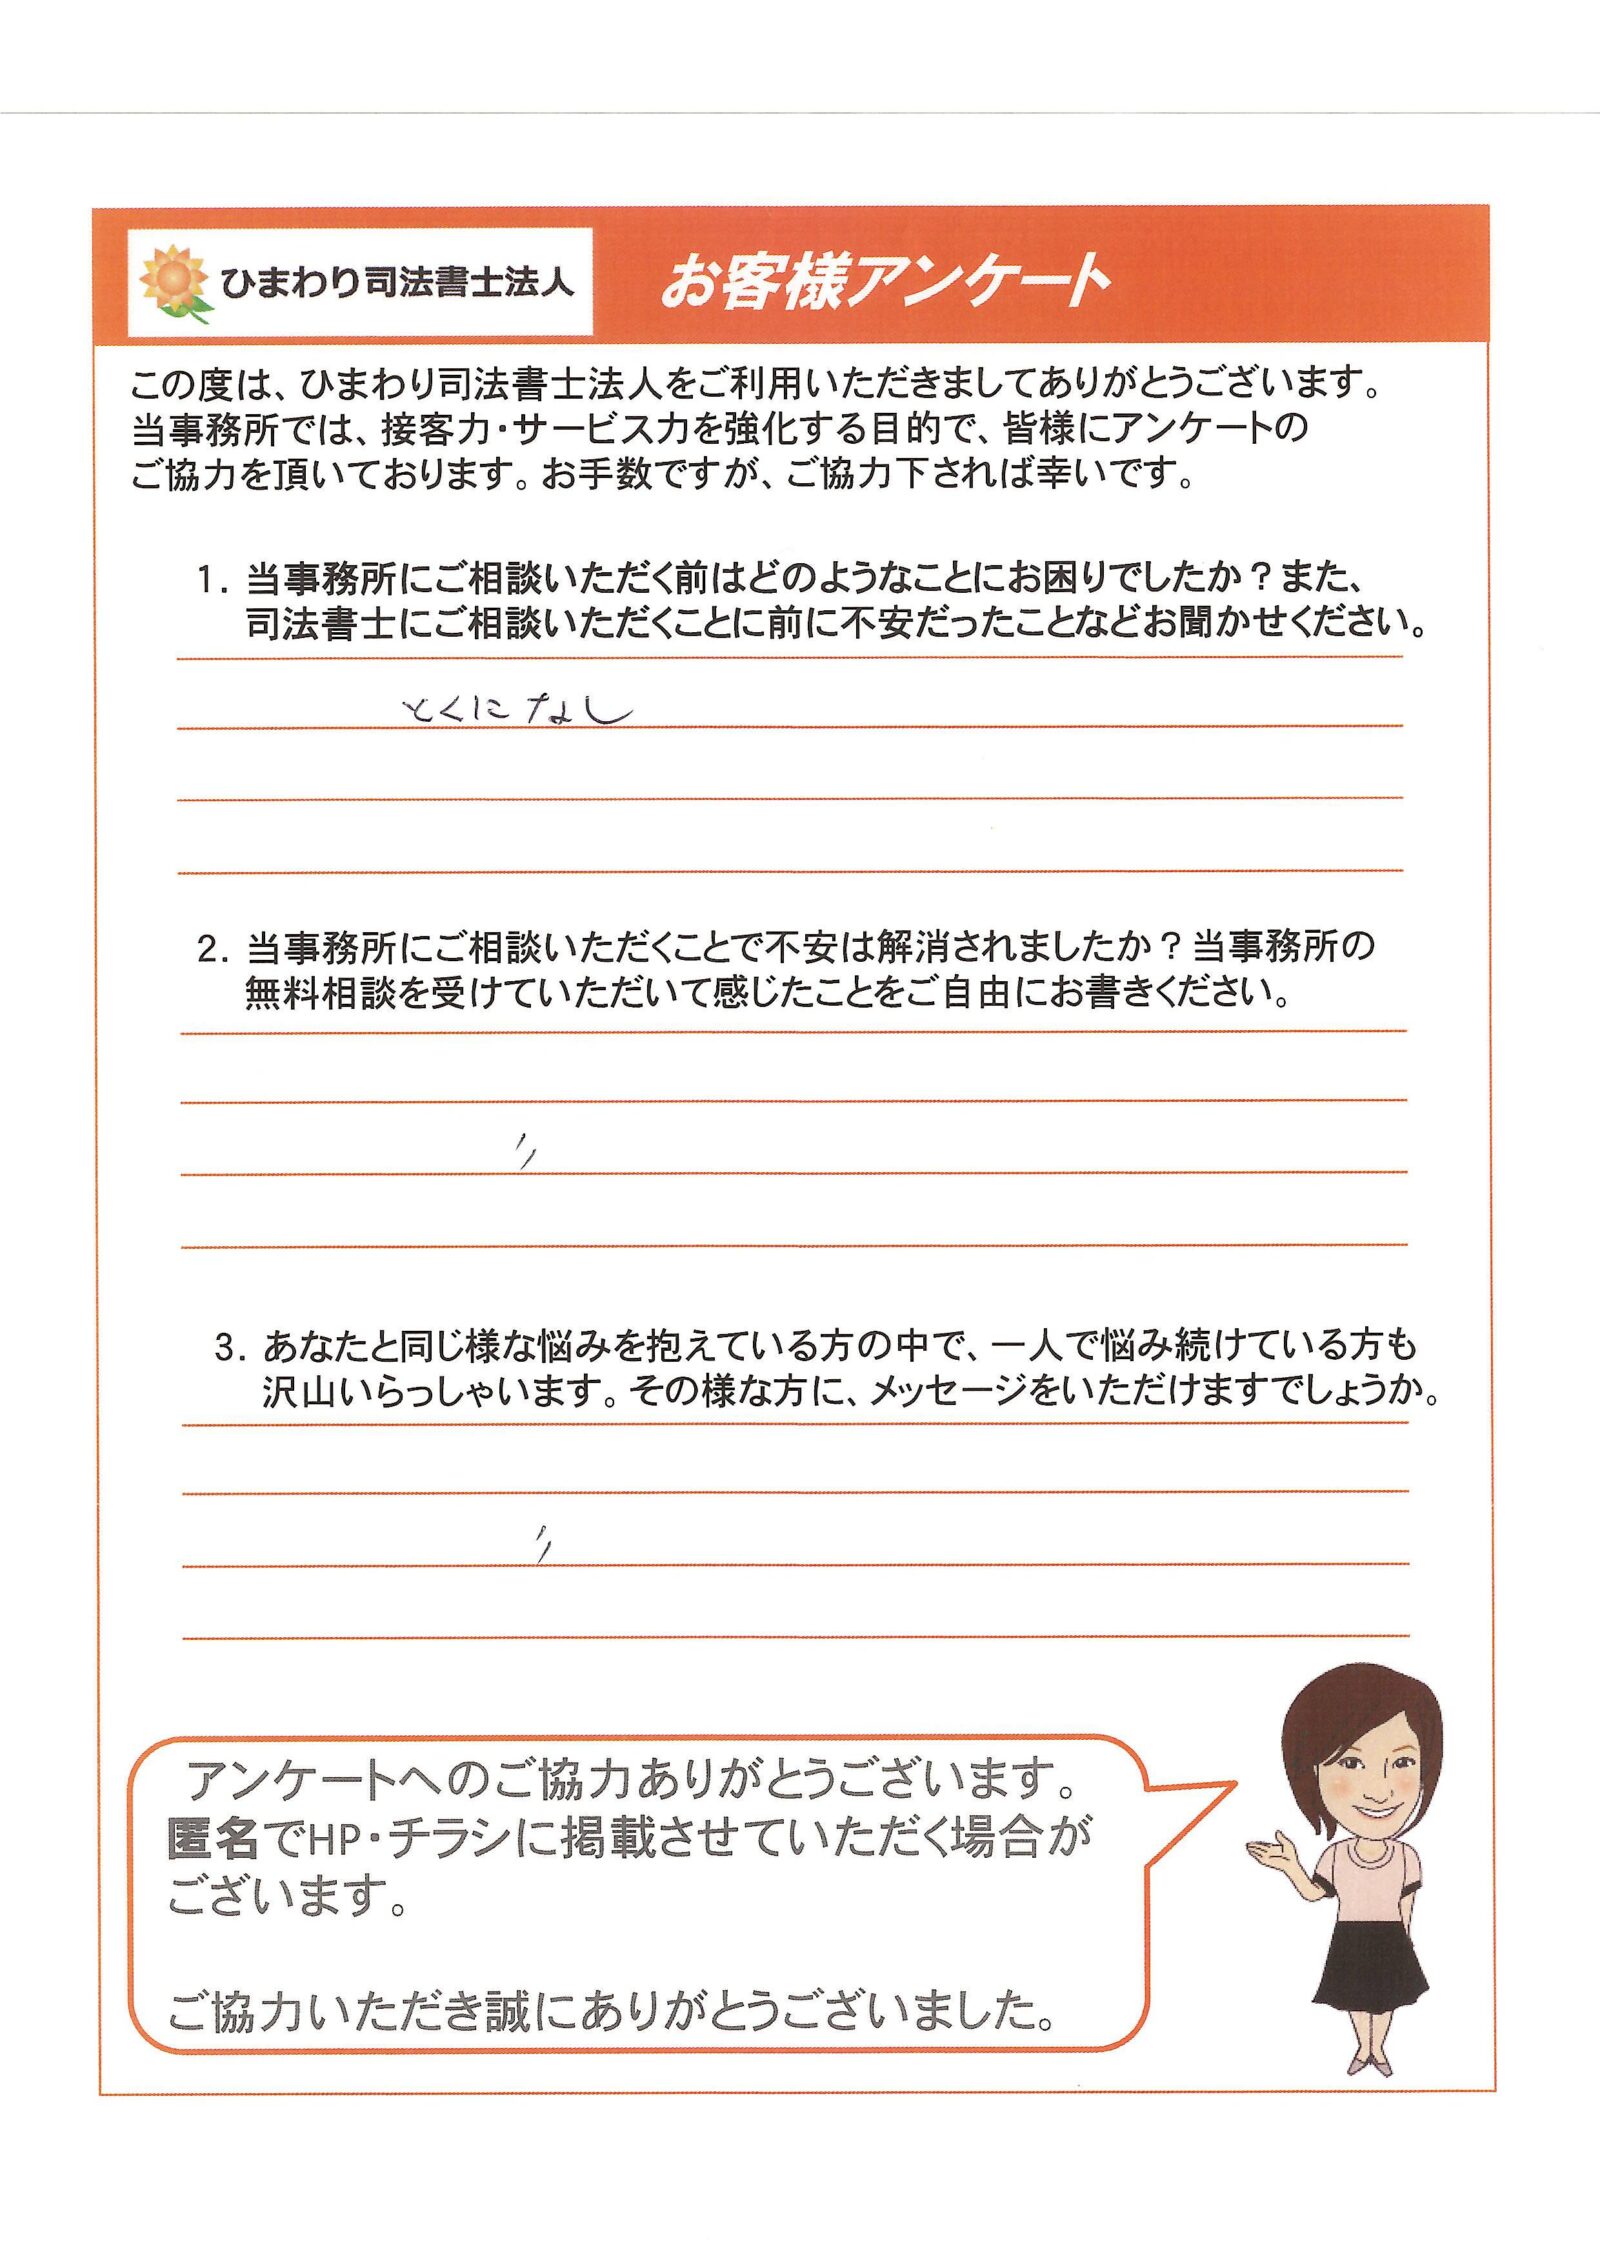 ひまわり司法書士法人
お客様アンケート
この度は、ひまわり司法書士法人をご利用いただきましてありがとうございます。
当事務所では、接客力・サービス力を強化する目的で、皆様にアンケートの
ご協力を頂いております。お手数ですが、ご協力下されば幸いです。
1. 当事務所にご相談いただく前はどのようなことにお困りでしたか？また、
司法書士にご相談いただくことに前に不安だったことなどお聞かせください。
とくになし
2. 当事務所にご相談いただくことで不安は解消されましたか？当事務所の
無料相談を受けていただいて感じたことをご自由にお書きください。
〃
3. あなたと同じ様な悩みを抱えている方の中で、一人で悩み続けている方も
沢山いらっしゃいます。その様な方に、メッセージをいただけますでしょうか。
〃
アンケートへのご協力ありがとうございます。
匿名でHP・チラシに掲載させていただく場合が
ございます。
ご協力いただき誠にありがとうございました。